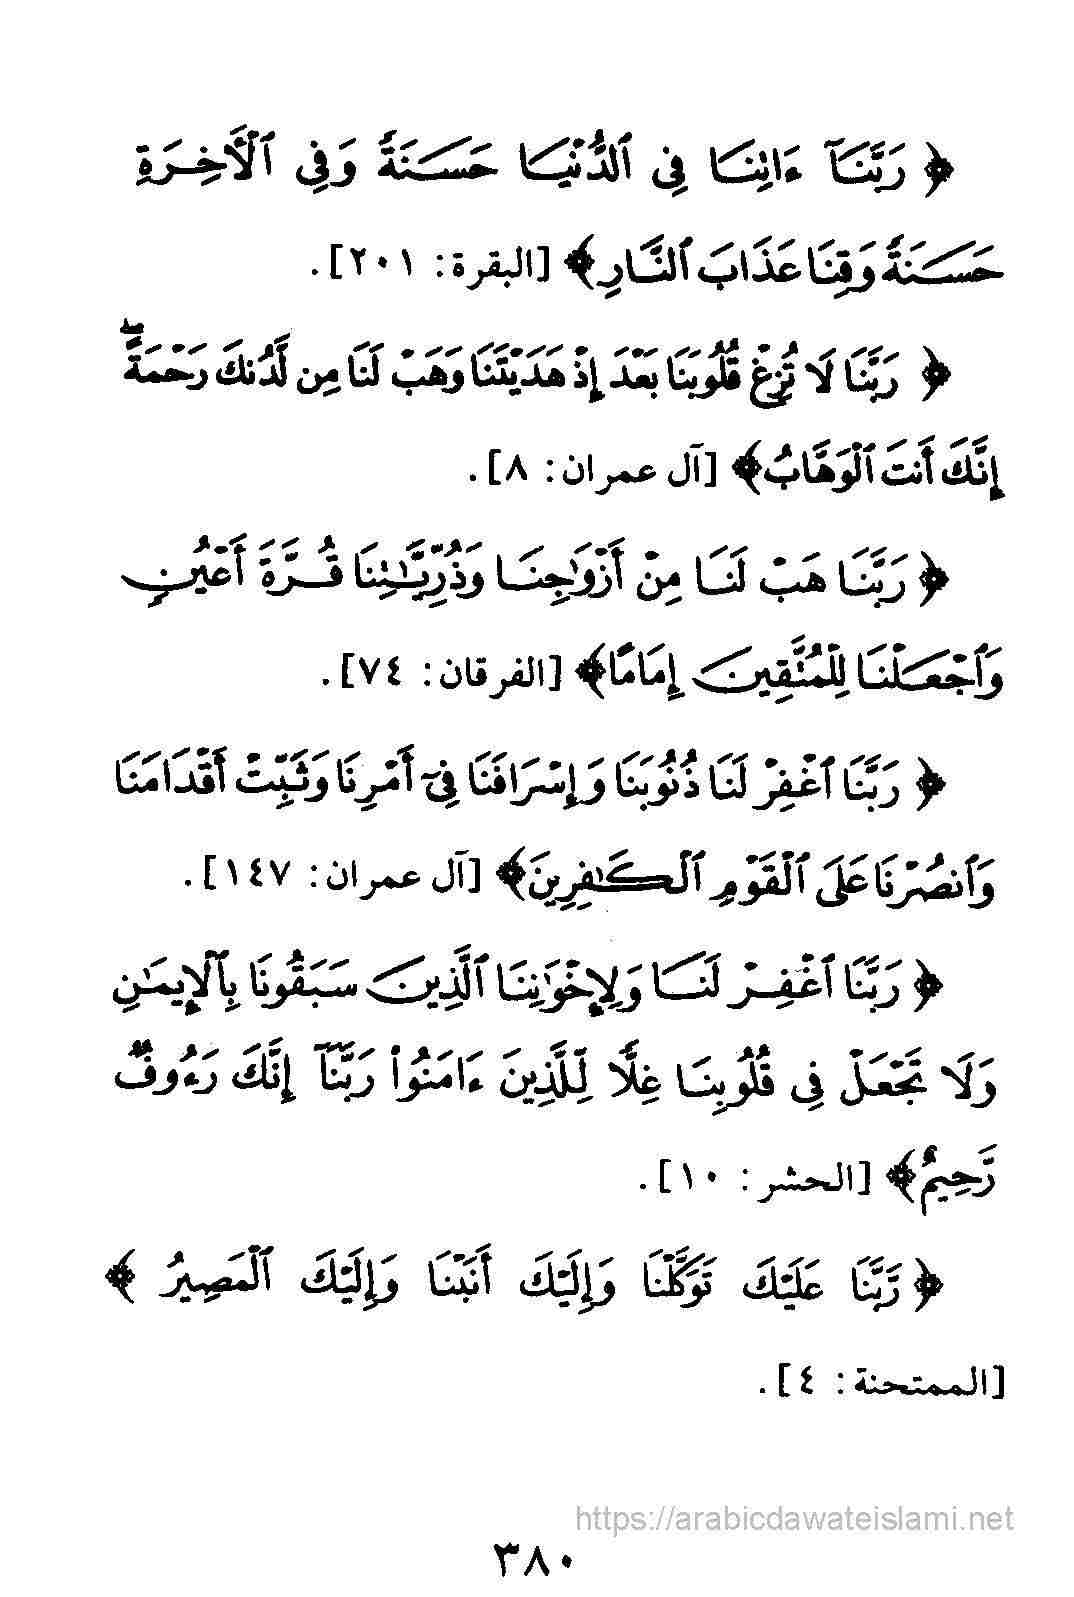 ﴿ رَبَّنَآ ءَاتِنَا فِى ٱلدُّنْيَا حَسَنَةً وَفِى ٱلْأَخِرَةِ
حَسَنَةً وَقِنَا عَذَابَ ٱلنَّارِ﴾ [البقرة: ٢٠١].
﴿ رَبَّنَا لَا تُزِغْ قُلُوبَنَا بَعْدَ إِذْ هَدَيْتَنَا وَهَبْ لَنَا مِن لَّدُنكَ رَحْمَةً ۖ
إِنَّكَ أَنتَ ٱلْوَهَّابُ﴾ [آل عمران: ٨].
﴿ رَبَّنَا هَبْ لَنَا مِنْ أَزْوَٰجِنَا وَذُرِّيَّـٰتِنَا قُرَّةَ أَعْيُنٍ
وَٱجْعَلْنَا لِلْمُتَّقِينَ إِمَامًا﴾ [الفرقان: ٧٤].
﴿ رَبَّنَا ٱغْفِرْ لَنَا ذُنُوبَنَا وَإِسْرَافَنَا فِىٓ أَمْرِنَا وَثَبِّتْ أَقْدَامَنَا
وَٱنصُرْنَا عَلَى ٱلْقَوْمِ ٱلْكَـٰفِرِينَ﴾ [آل عمران: ١٤٧].
﴿ رَبَّنَا ٱغْفِرْ لَنَا وَلِإِخْوَٰنِنَا ٱلَّذِينَ سَبَقُونَا بِٱلْإِيمَـٰنِ
وَلَا تَجْعَلْ فِى قُلُوبِنَا غِلًّا لِّلَّذِينَ ءَامَنُوا۟ رَبَّنَآ إِنَّكَ رَءُوفٌ
رَّحِيمٌ﴾ [الحشر: ١٠].
﴿ رَّبَّنَا عَلَيْكَ تَوَكَّلْنَا وَإِلَيْكَ أَنَبْنَا وَإِلَيْكَ ٱلْمَصِيرُ ﴾
[الممتحنة: ٤].
https://arabicdawateislami.net
٣٨٠